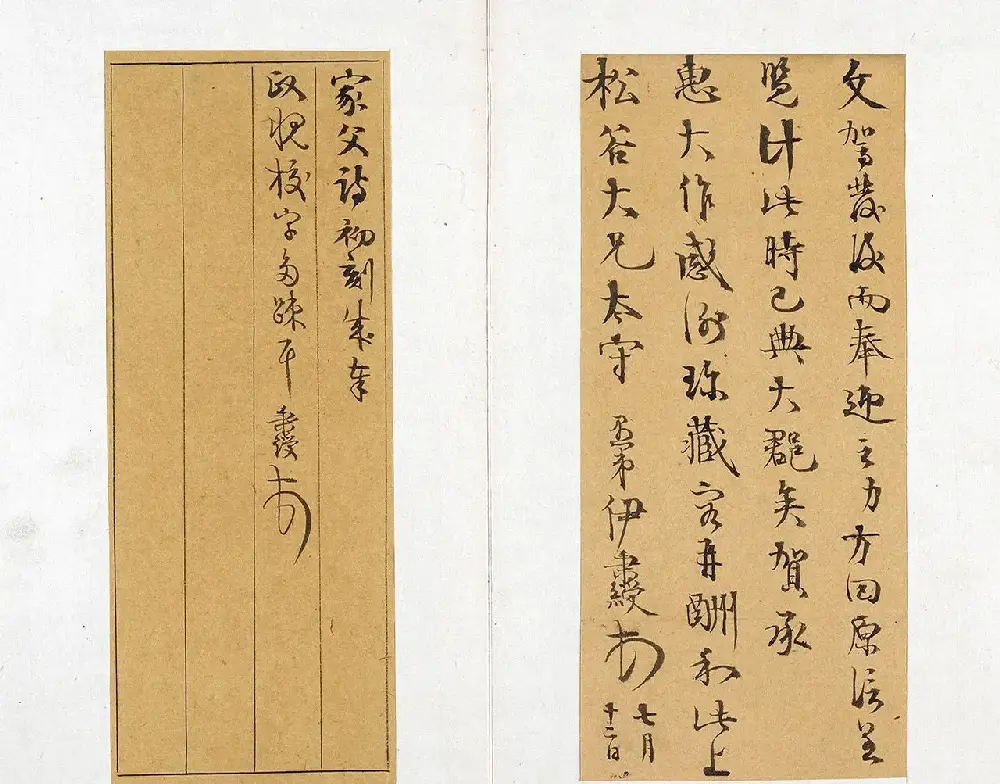 文駕發後而奉迎之力方回原信呈
覽計此時已典大郡矣賀承
惠大作感謝珍藏容再酬和此上
松谷大兄太守 愚弟伊秉綬
七月
十二日
家父詩初刻成奉
政恐校字多疎耳 秉綬